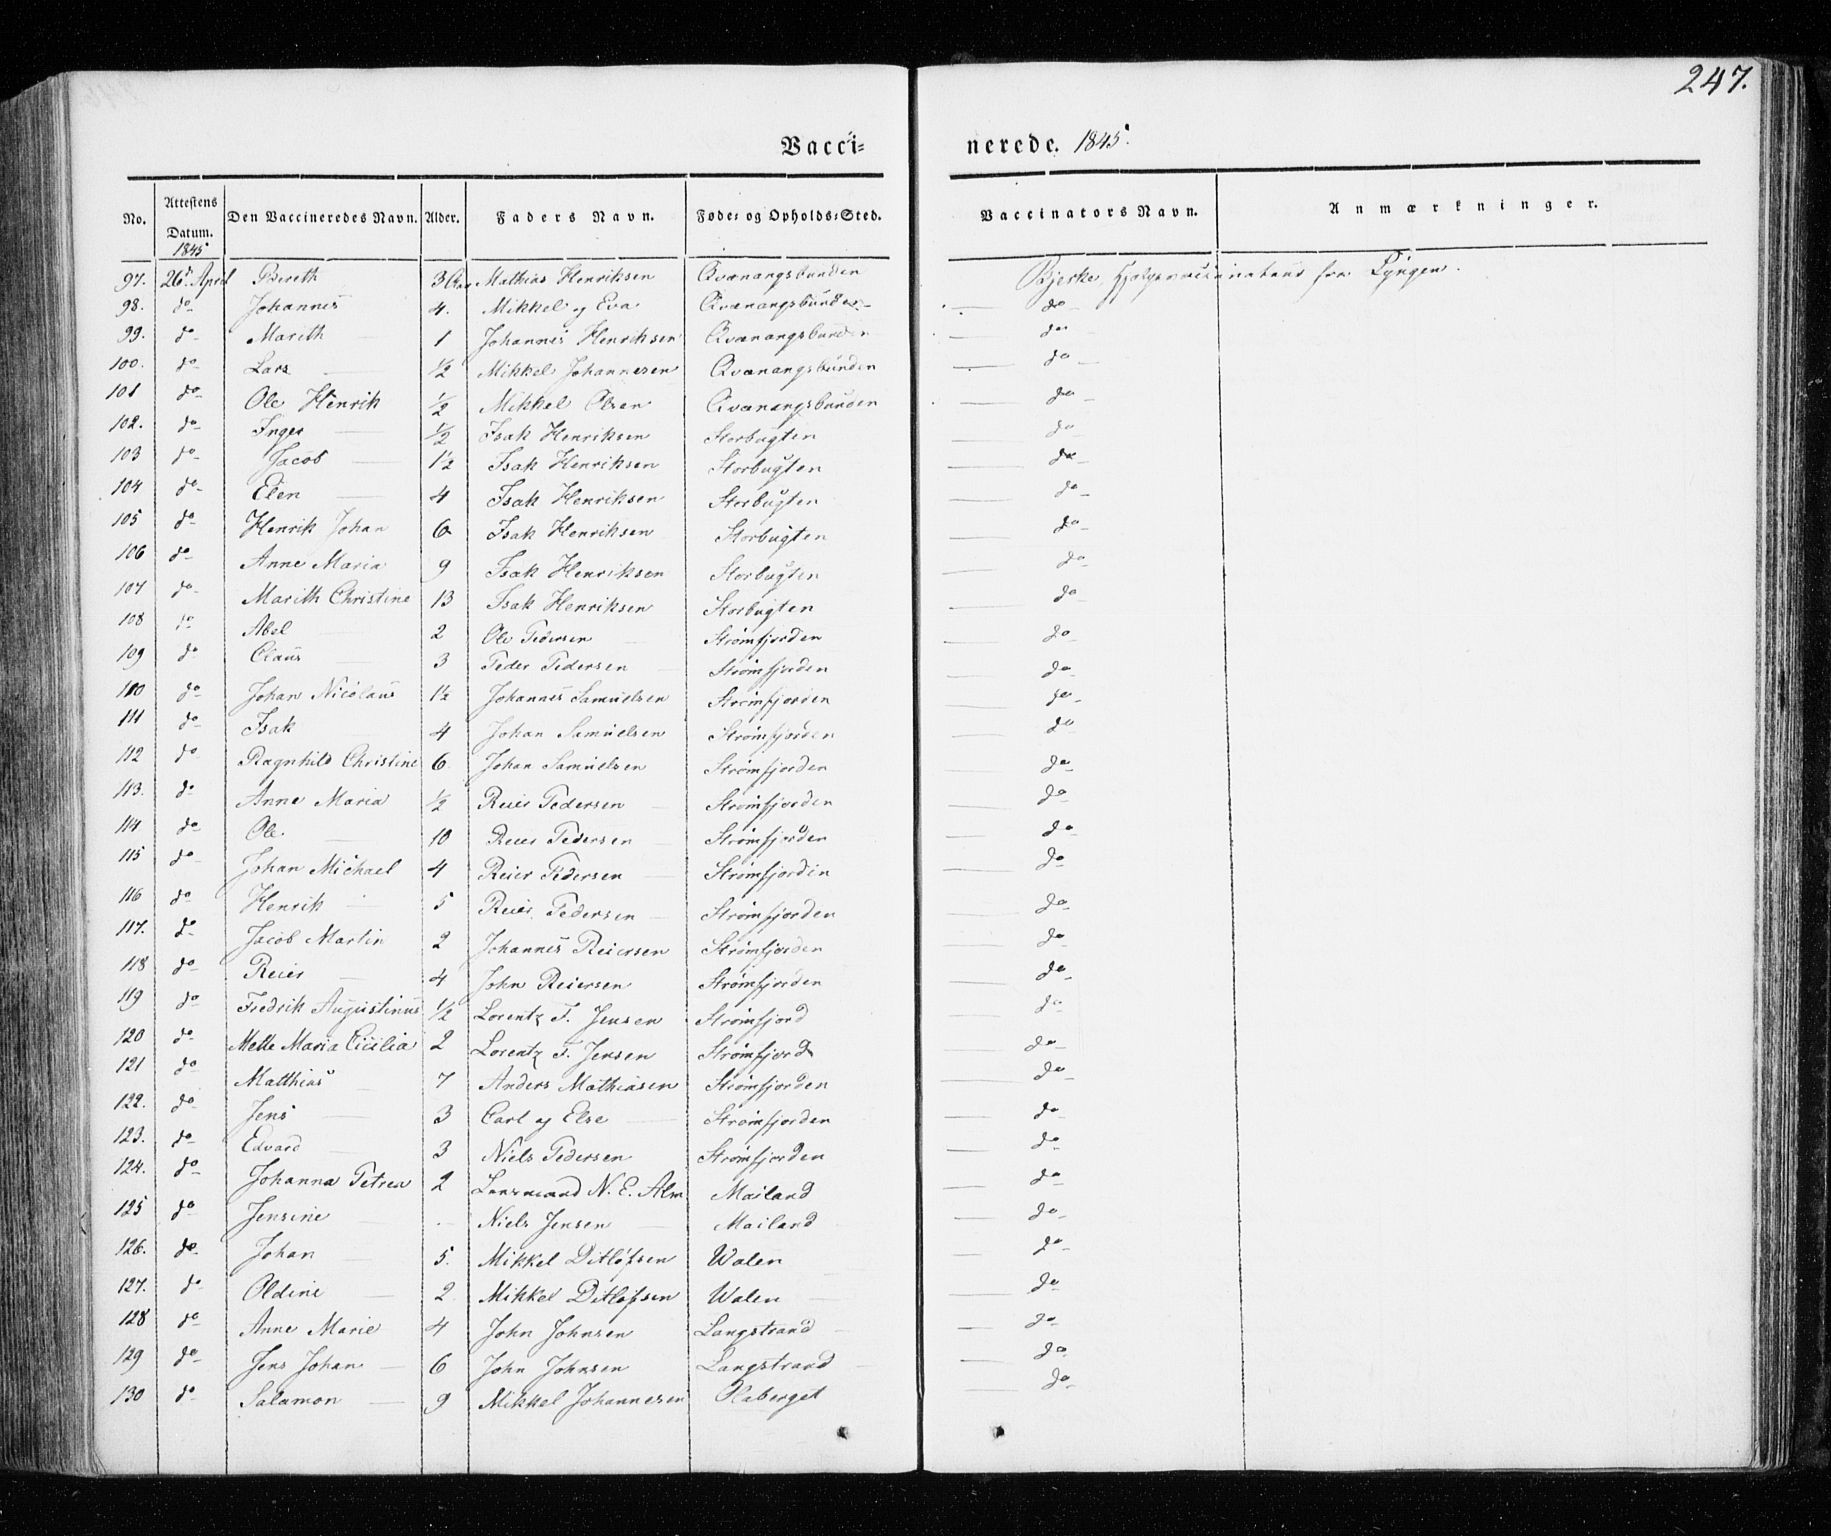 247.
Vacci=nerede. 1845.
No. | Attestens Datum. | Den Vaccineredes Navn. | Alder. | Faders Navn. | Føde= og Opholds=Sted. | Vaccinators Navn. | Anmærkninger.
1845
97. 26. April Bereth 3 Aar Mathias Henriksen Qvænangsbunden Bjerke, Hjelpevaccinateur fra Lyngen.
98. do Johannes 4. Mikkel og Eva Qvænangsbunden — do
99. do Marith 1 Johannes Henriksen Qvænangsbunden — do
100. do Lars 1/2 Mikkel Johannesen Qvænangsbunden — do
101 do Ole Henrik 1/2 Mikkel Olsen Qvænangsbunden — do
102. do Inger 1/2 Isak Henriksen Storbugten — do
103 do Jacob 1 1/2 Isak Henriksen Storbugten — do
104 do Elen 4 Isak Henriksen Storbugten — do
105 do Henrik Johan 6 Isak Henriksen Storbugten — do
106 do Anne Maria 9 Isak Henriksen Storbugten — do
107 do Marith Christine 13 Isak Henriksen Storbugten — do
108 do Abel 2 Ole Pedersen Strømfjorden — do
109 do Claus 3 Peder Pedersen Strømfjorden — do
110 do Johan Nicolaus 1 1/2 Johannes Samuelsen Strømfjorden — do
111 do Isak 4 Johan Samuelsen Strømfjorden — do
112 do Ragnhild Christine 6. Johan Samuelsen Strømfjorden — do
113. do Anne Maria 1/2 Reier Pedersen Strømfjorden — do
114 do Ole 10 Reier Pedersen Strømfjorden — do
115 do Johan Michael 4 Reier Pedersen Strømfjorden — do
116 do Henrik 5 Reier Pedersen Strømfjorden — do
117. do Jacob Martin 2 Johannes Reiersen Strømfjorden — do
118 do Reier 4 John Reiersen Strømfjorden — do
119 do Fredrik Augustinus 1/2 Lorentz F. Jensen Strømfjord — do
120 do Mette Maria Cicilia 2 Lorentz F. Jensen Strømfjord — do
121 do Matthias 7 Anders Mathiasen Strømfjorden — do
122. do Jens 3 Carl og Else Strømfjorden — do
123. do Edvard 3 Niels Pedersen Strømfjorden — do
124. do Johanna Petrea 2 Lensmand N. E. Alm Mailand — do
125 do Jensine — Niels Jensen Mailand — do
126. do Johan 5. Mikkel Ditlofsen Walen — do
127. do Oldine 2 Mikkel Ditlofsen Walen — do
128 do Anne Marie 4 John Johnsen Langstrand — do
129 do Jens Johan 6 John Johnsen Langstrand — do
130 do Salamon 9 Mikkel Johannesen Olaberget — do